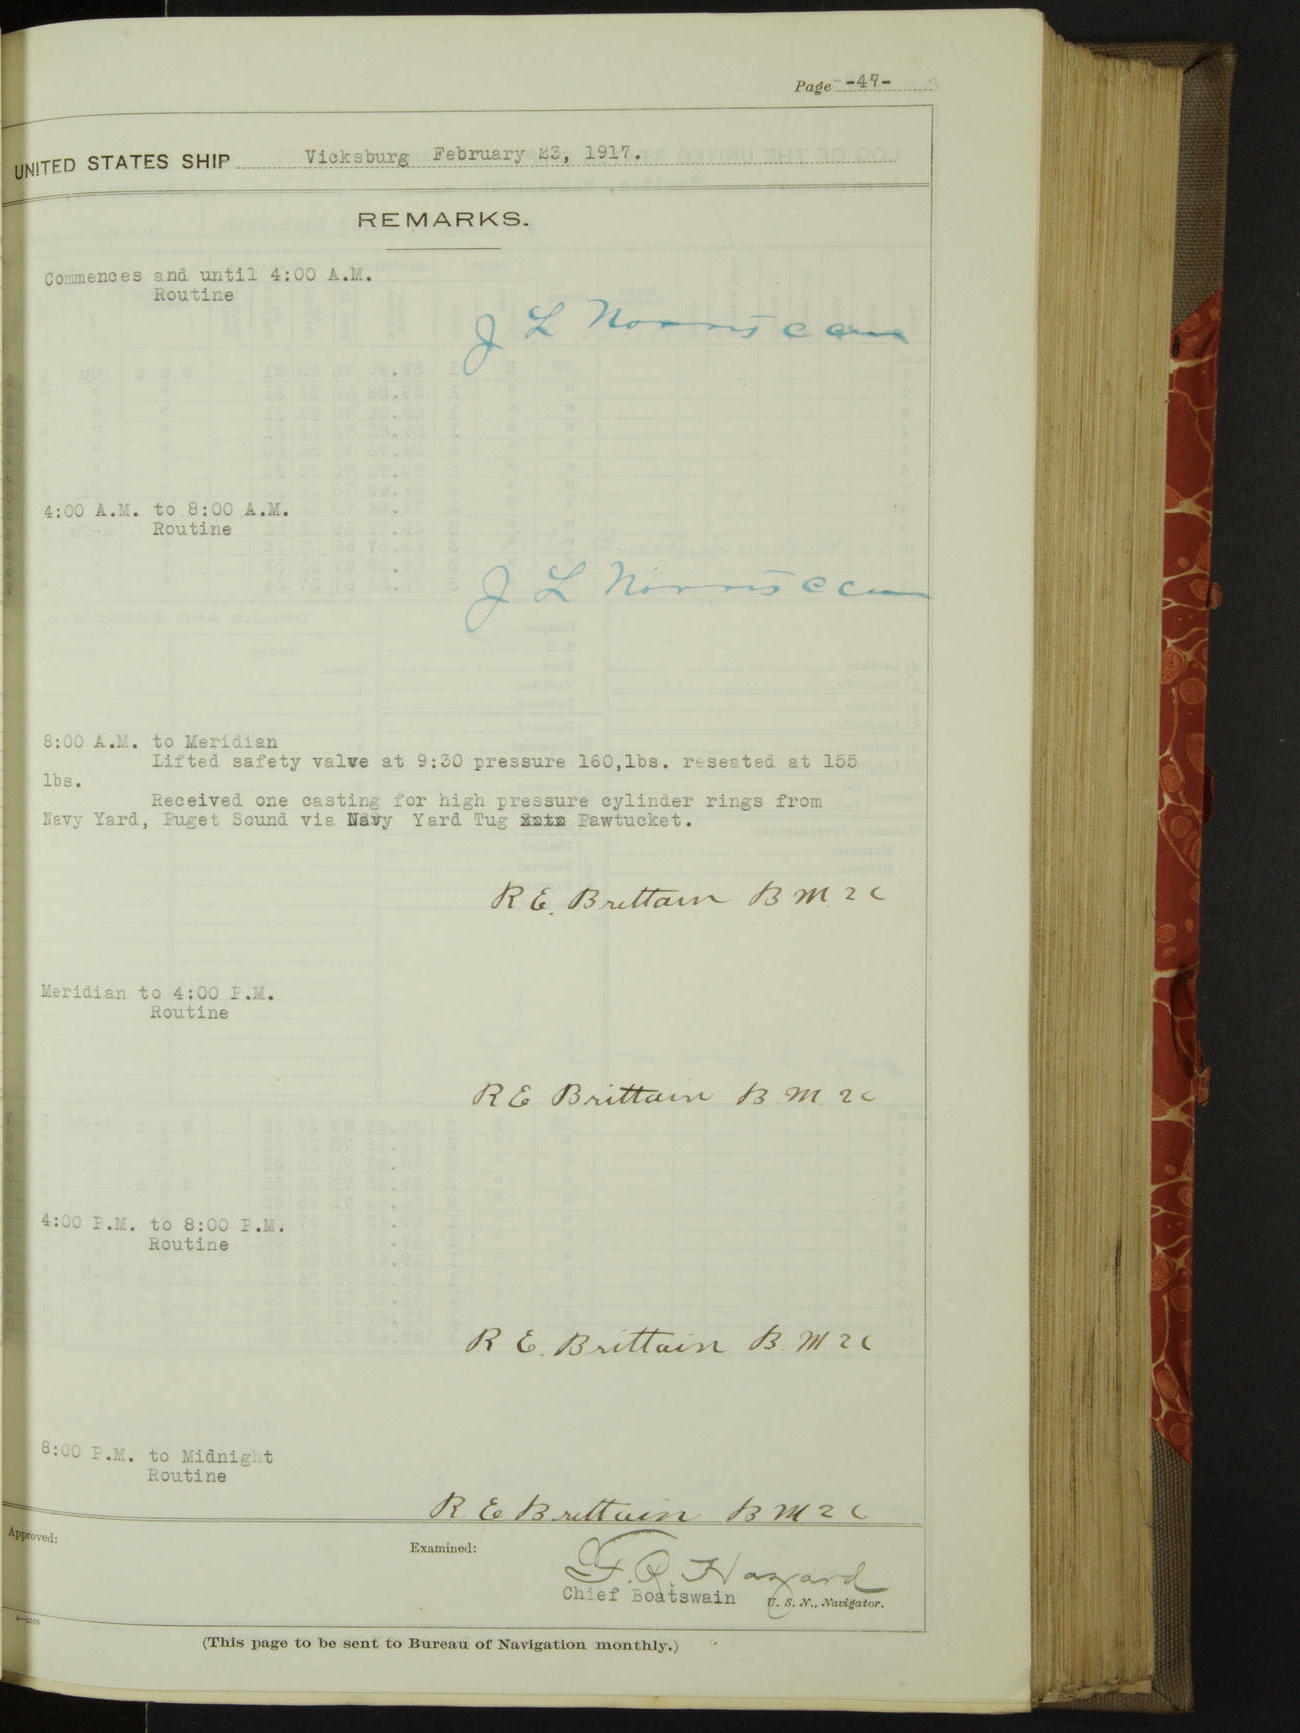 Page -47-
UNITED STATES SHIP Vicksburg February 23, 1917.
REMARKS.
Commences and until 4:00 A.M.
Routine
J L Norris C C M
4:00 A.M. to 8:00 A.M.
Routine
J L Norris C C M
8:00 A.M. to Meridian
Lifted safety valve at 9:30 pressure 160,lbs. reseated at 155
lbs.
Received one casting for high pressure cylinder rings from
Navy Yard, Puget Sound via Navy Yard Tug Pawtucket.
R E. Brittain B M 2 C
Meridian to 4:00 P.M.
Routine
R E Brittain B. M. 2 C
4:00 P.M. to 8:00 P.M.
Routine
R E. Brittain B. M 2 C
8:00 P.M. to Midnight
Routine
R. E Brittain B M 2 C
Approved:
Examined:
F. R. Hazard
Chief Boatswain U. S. N., Navigator.
(This page to be sent to Bureau of Navigation monthly.)